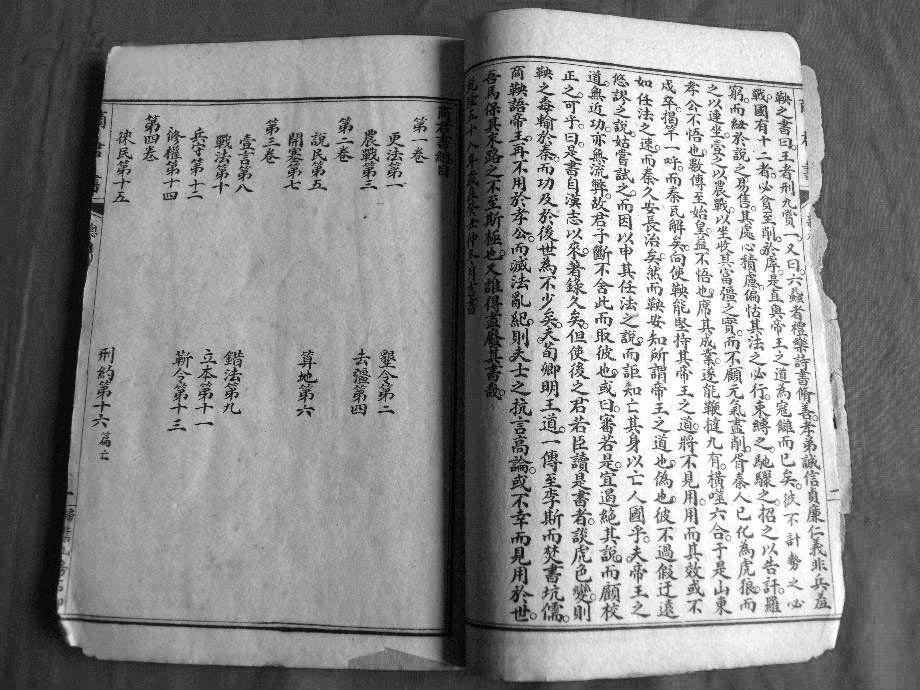 鞅之書曰王者刑九賞一又曰六蝨者禮樂詩書脩善孝弟誠信貞廉仁義非兵羞
戰國有十二者必貧至削於序是直與帝王之道為寇讎而已矣彼不計勢之必
窮而紐於說之易售其處心積慮偏怙其法之必行束縛之馳驟之招之以告訐羅
之以連坐壹之以農戰以坐收其富彊之實而不顧元氣盡削胥秦人已化為虎狼而
孝公不悟也數傳至始皇益不悟也席其成業遂能鞭撻九有橫噬六合于是山東
戍卒揭竿一呼而秦民解矣向使鞅能堅持其帝王之道將不見用用而其效或不
如任法之速而秦久安長治矣然而鞅安知所謂帝王之道也偽也彼不過假迂遠
悠謬之說姑嘗試之而因以申其任法之說而詎知亡其身以亡人國乎夫帝王之
道無近功亦無流弊故君子斷不舍此而取彼也或曰審若是宜遏絕其說而顧校
正之可乎曰是書自漢志以來著錄久矣但使後之君若臣讀是書者談虎色變則
鞅之毒輸於秦而功及於後世為不少矣夫荀卿明王道一傳至李斯而焚書坑儒
商鞅語帝王再不用於孝公而滅法亂紀則夫士之抗言高論或不幸而見用於世
吾焉保其末路之不至斯極也又誰得盡廢其書哉
乾隆五十八年歲在癸丑仲冬月
商君書總目
第一卷
更法第一
墾令第二
農戰第三
去彊第四
第二卷
說民第五
算地第六
開塞第七
第三卷
壹言第八
錯法第九
戰法第十
立本第十一
兵守第十二
靳令第十三
修權第十四
第四卷
徠民第十五
刑約第十六 篇亡
商君書
總目
一
二